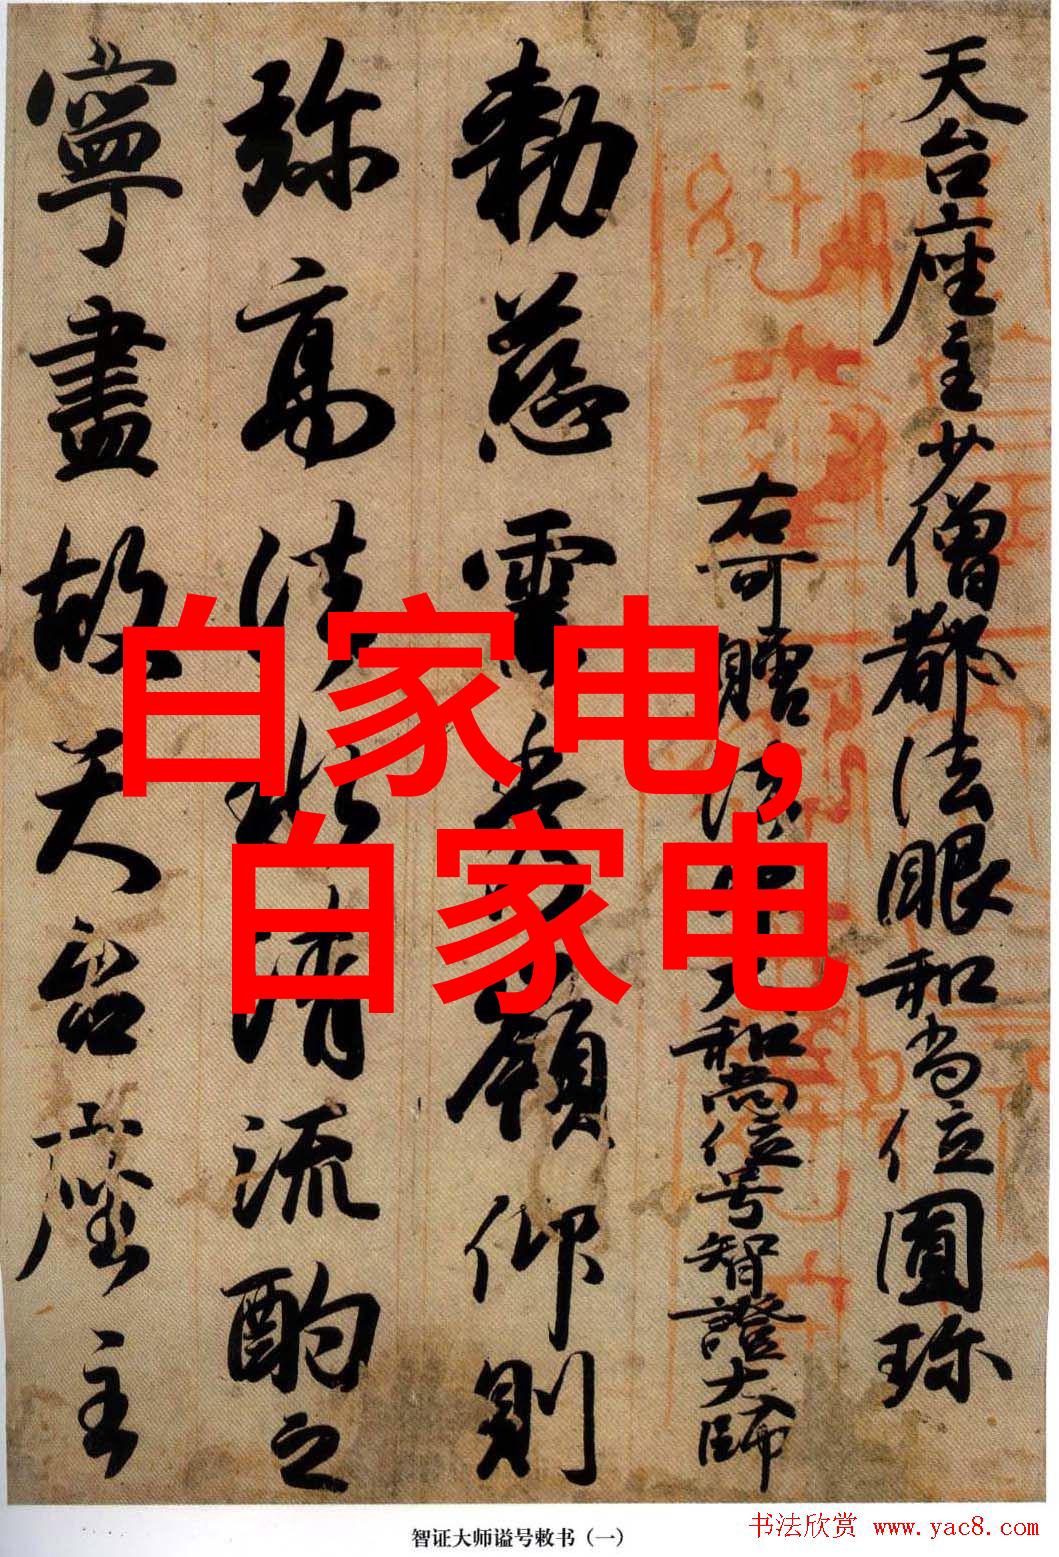 天台座主少僧都法眼和尚位圓珎
右可贈法大和尚位号智證大師
勅慈雲秀嶺仰則
弥高法水清流酌之
寧盡故天台座主
白家电,
白家电
智证大师谥号敕书（一）
书法欣赏 www.yac8.com